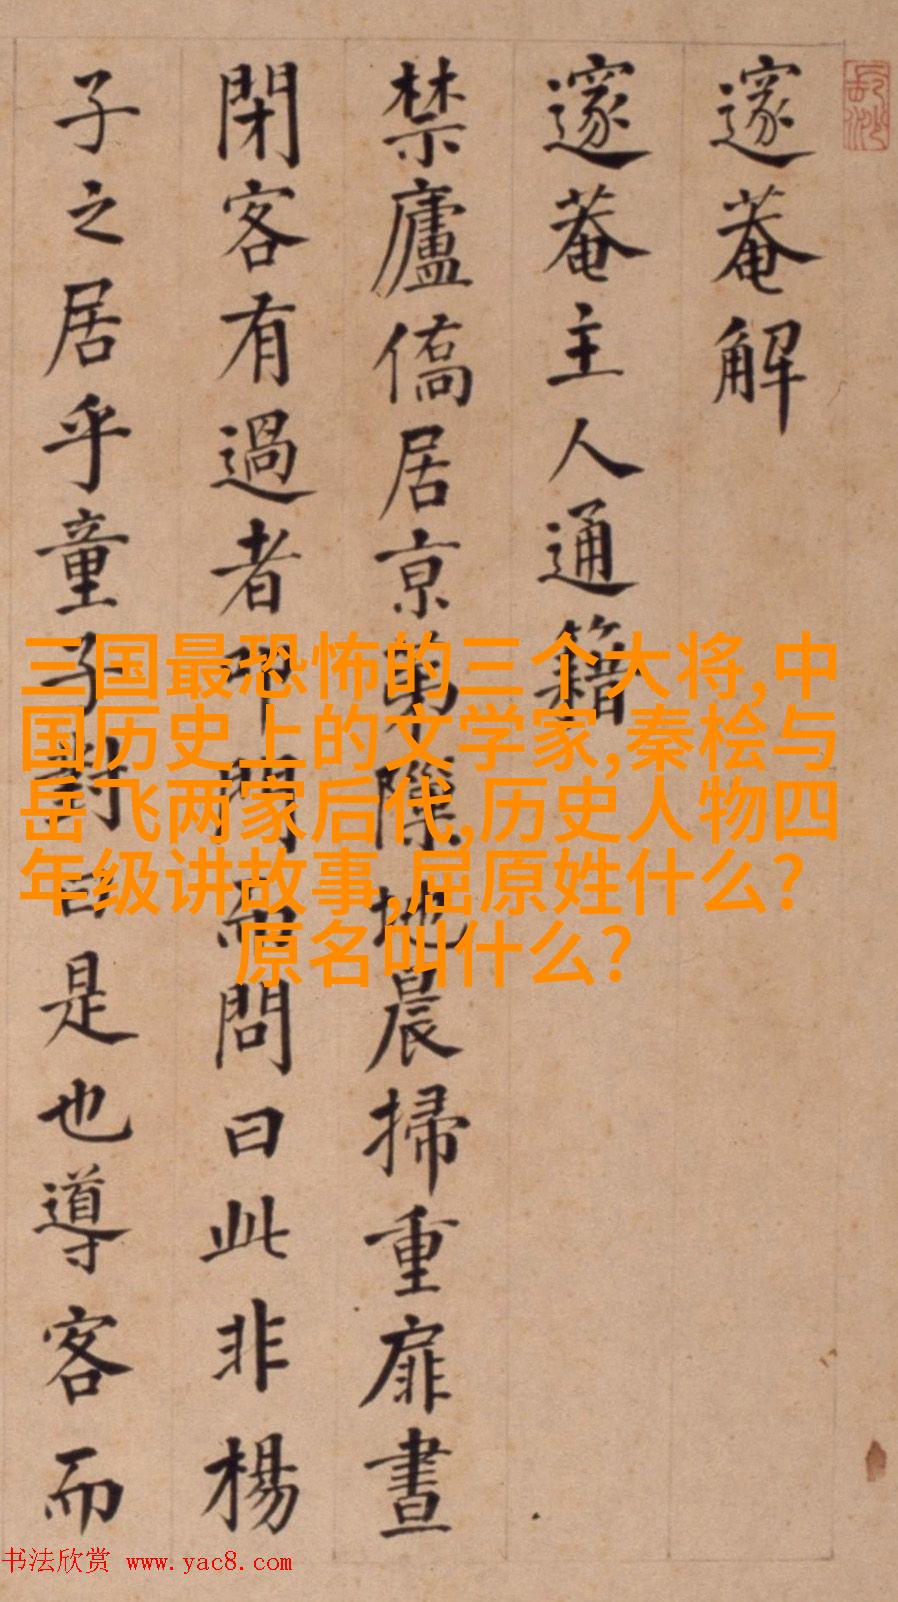 邃菴解
邃菴主人通籍
禁廬僑居京隙地晨掃重扉晝
閉客有過者叩門而問曰此非楊
子之居乎童子對曰是也導客而
三国最恐怖的三个大将,中
国历史上的文学家,秦桧与
岳飞两家后代,历史人物四
年级讲故事,屈原姓什么?
原名叫什么?
书法欣赏 www.yac8.com